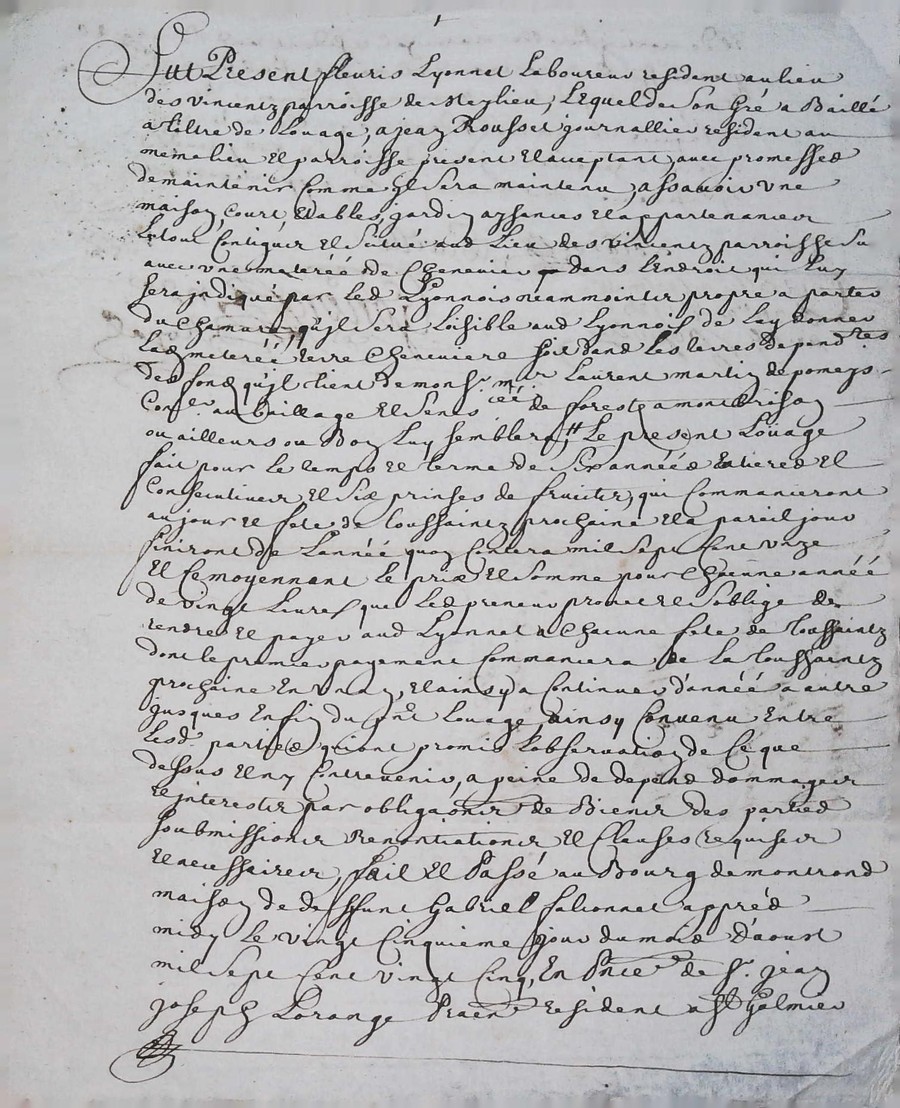 Fut Present fleuris Lyonnet Laboureur resident au lieu
des vincentz parroisse de Meylieu, Lequel de son Gré a Baillé
a tiltre de Louage, a jean Rousset journallier resident au
meme lieu et parroisse present et acceptant, avec promesses
de maintenir comme jl sera maintenu, assavoir une
maison, Court, Etables, jardin, ayzances et appartenances
Le tout Contiguës et scitué aud Lieu des vincentz parroisse Su
avec une meterée de Chenevier dans L'endroit qui Luy
sera jndiqué par Led Lyonnois neammointz propre a porter
du Chanvre, qu'jl sera Loisible aud Lyonnois de Luy donner
Lad meterée terre Cheneviere soit dans Les terres dependtes
des fondz qu'jl tient de monsr. mr Laurent martin de pomeys
Conser. au Baillage et senes de forestz a montbrison
ou ailleurs ou Bon Luy semblera, Le present Loüage
fait pour Le temps et terme de Six années Entieres et
Consecutives et Six prinses de fruictz, qui Commanceront
au jour et fete de toussaintz prochaine et a pareil jour
finiront de L'année quon Contera mil sept Cent
et Ce moyennant Le prix et somme pour Chacune année
de vingt Livres que Led preneur promet et s'oblige de
rendre et payer aud Lyonnet a Chacune fete de toussaintz
dont le premier payement Commancera de La toussaintz
prochaine En un an, et ainsy a Continuer d'année a autre
jusques Enfin du pnt Louage, ainsy Convenu Entre
Lesd. parties qui ont promis L'observation de Ce que
dessus et ny Contrevenir, a peine de depens dommages
et interestz par obligaõns de Biens des parties
soubmissions Renontiations et Clauses requises
et necessaires, fait et Passé au Bourg de montrond
maison de deffunt Gabriel falconnet apprés
midy Le vingt Cinquieme jour du mois d'aoust
mil sept Cent vingt Cinq, En pnce de sr. jean
joseph Lorange Praen resident a St Galmier